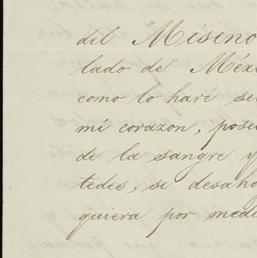 del "Miseno
lado de Méxi
como lo haré se
mi corazon, pose
de la sangre y
tedes, se desaho
quiera por medi